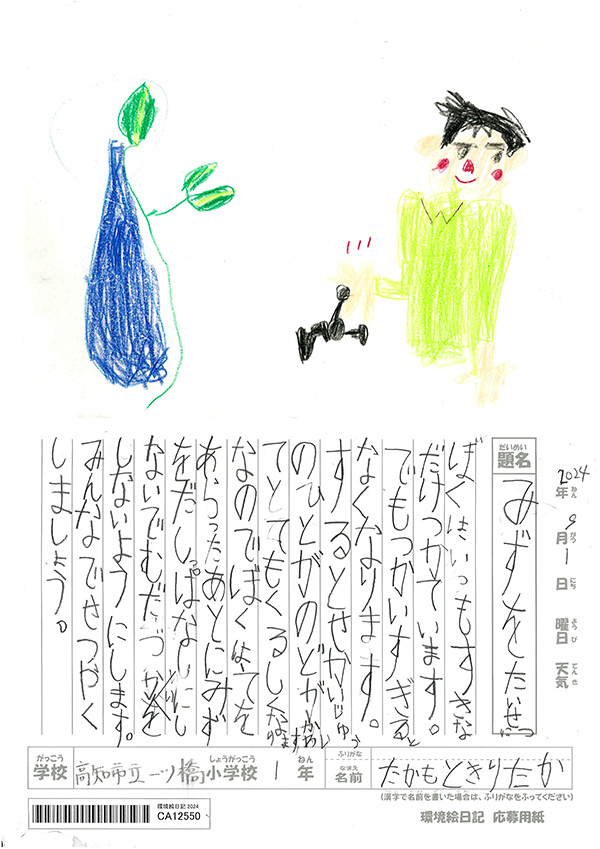 2024年ねん 9月がつ 1日にち 曜日ようび 天気てんき
題名だいめい みずをたいせつ
ぼくはいつもすきな
だけつかています。
でもつかいすぎると
なくなります。
するとせかいじゅう
のひとがのどがかわい
てとてもくるしくなります
なのでぼくは、てを
あらったあとにみず
をだしっぱなしにし
ないでむだづかいを
しないようにします。
みんなでせつやく
しましょう。
がっこう しょうがっこう ねん
学校 高知市立一ツ橋小学校 1年
ふりがな
なまえ
名前 たかもときりたか
(漢字で名前を書いた場合は、ふりがなをふってください)
環境絵日記 2024
CA12550
環境絵日記 応募用紙